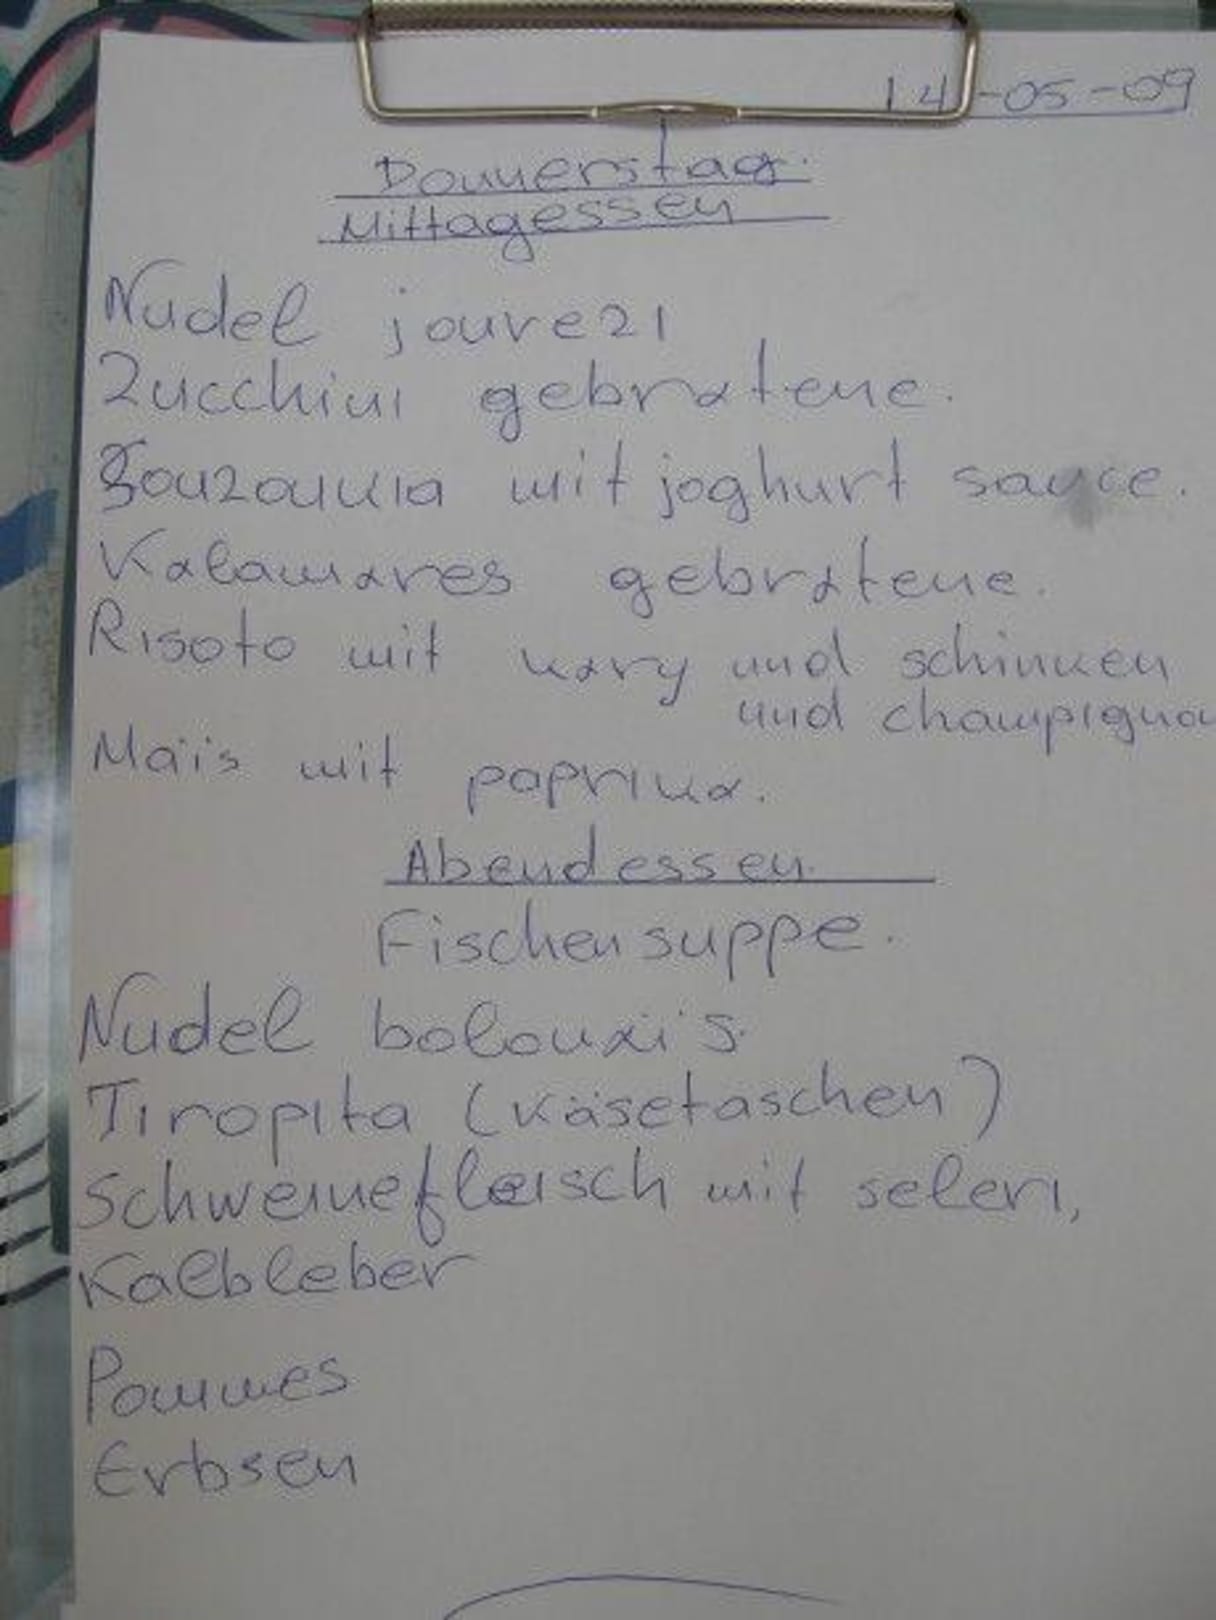 14-05-09
Donnerstag.
Mittagessen
Nudel jouvezi
Zucchini gebratene.
mit joghurt sauce.
Kalamares gebratene.
Risoto mit kary und schinken
und champigno
Maïs mit paprika.
Abendessen
Fischensuppe.
Nudel
Tiropita (Käsetaschen)
Schweinefleisch mit seleri,
Kalbleber
Pommes
Erbsen